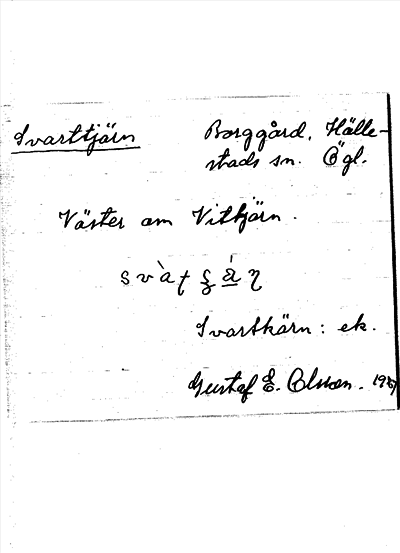 Svarttjärn Borggård, Hälle-
stads sn. Ögl.
Väster om Vittjärn.
Svartkärn: ek.
Gustaf E. Olsson.